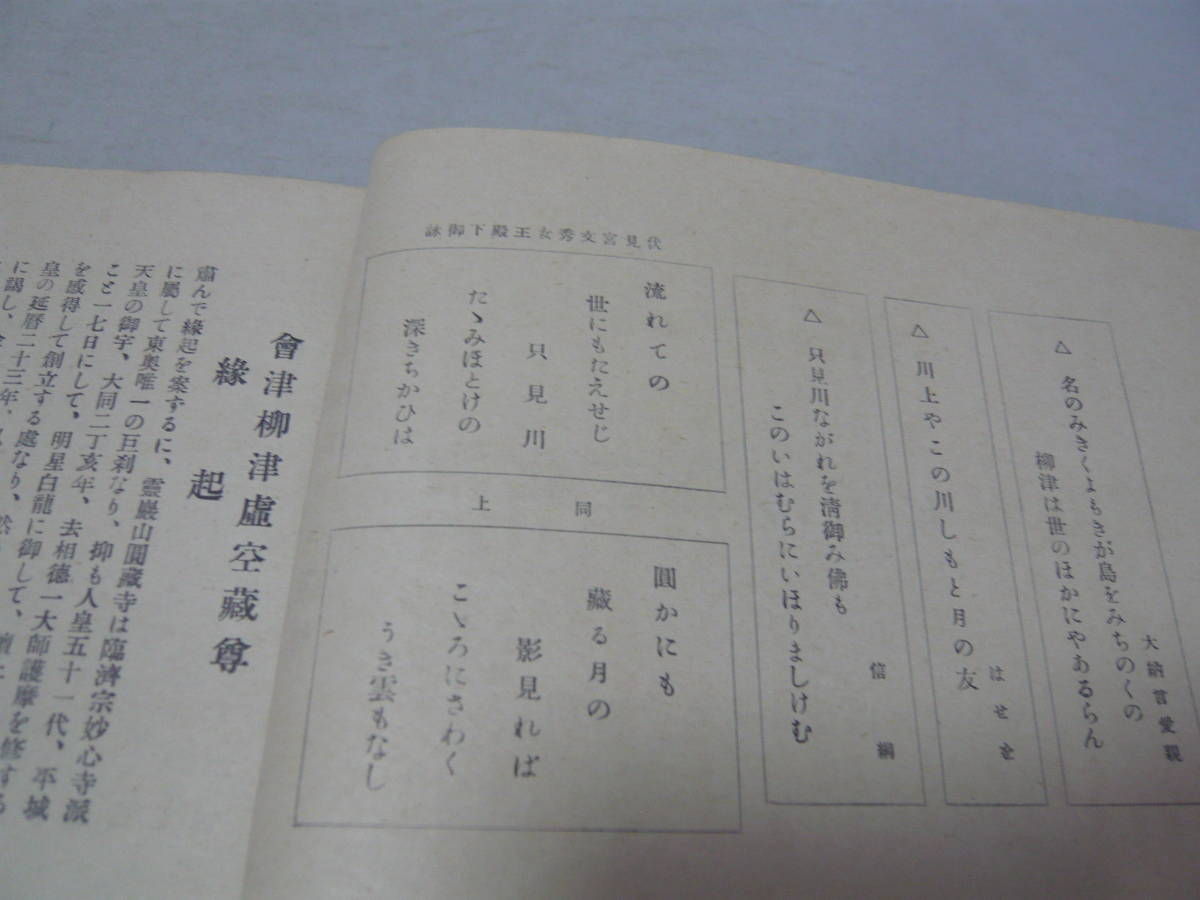 大納言愛親
△ 名のみきくよもきが島をみちのくの
柳津は世のほかにやあるらん
はせを
△ 川上やこの川しもと月の友
信綱
△ 只見川ながれを清御み佛も
このいはむらにいほりましけむ
伏見宮文秀女王殿下御詠
流れての
世にもたえせじ
只見川
たゝみほとけの
深きちかひは
同上
圓かにも
藏る月の
影見れば
こゝろにさわく
うき雲もなし
會津柳津虛空藏尊
緣起
肅んで緣起を案ずるに、靈巖山圓藏寺は臨濟宗妙心寺派
に屬して東奥唯一の巨刹なり、抑も人皇五十一代、平城
天皇の御宇、大同二丁亥年、去相德一大師護摩を修する
こと一七日にして、明星白龍に御して、
を感得して創立する處なり、
皇の延曆二十三年、
に謁し、